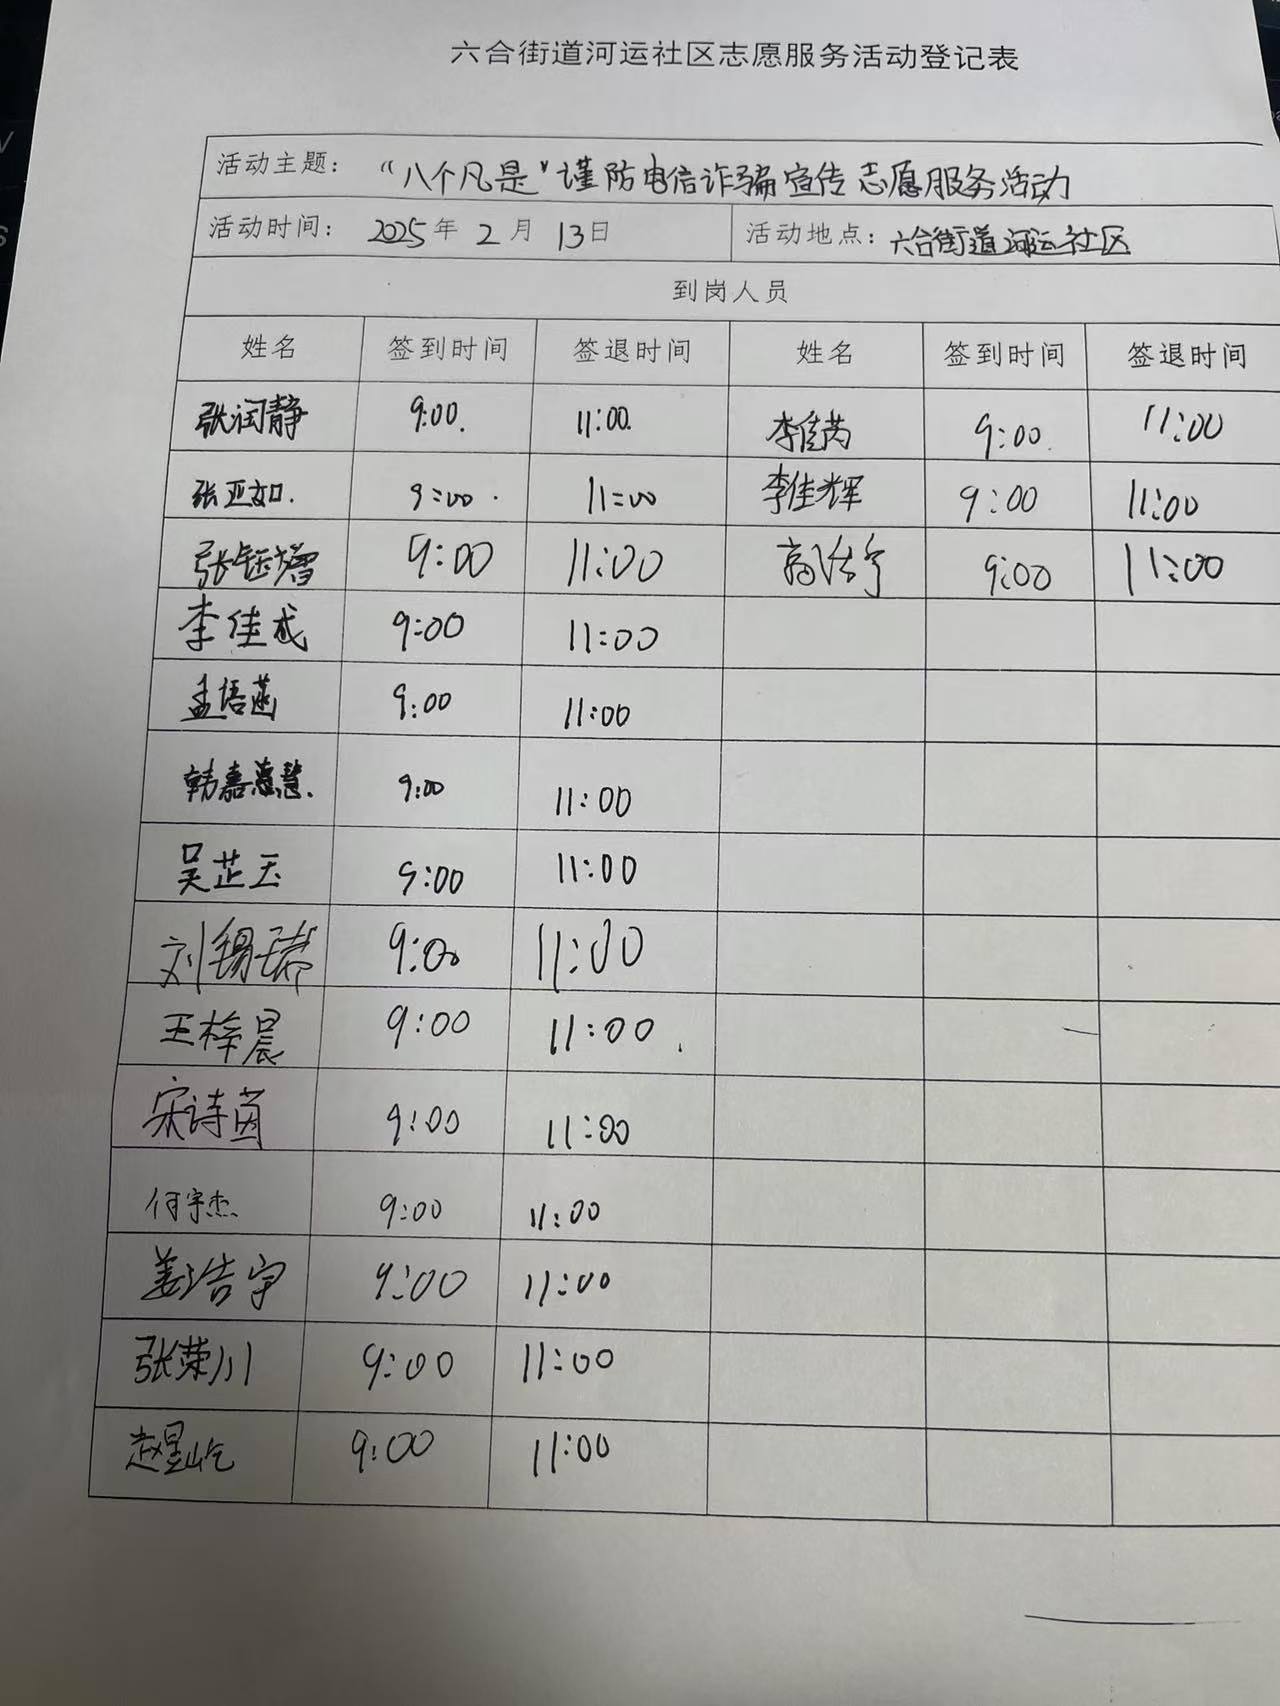 六合街道河运社区志愿服务活动登记表
活动主题： “八个凡是”谨防电信诈骗宣传志愿服务活动
活动时间： 2025年 2 月 13日 活动地点：六合街道河运社区
到岗人员
姓名 签到时间 签退时间 姓名 签到时间 签退时间
张润静 9:00. 11:00. 李佳芮 9:00. 11:00
张亚如. 9:00. 11:00 李佳辉 9:00 11:00
张钰增 9:00 11:00 高浩宁 9:00 11:00
李佳成 9:00 11:00
孟培菡 9:00 11:00
韩嘉慧. 9:00 11:00
吴芷玉 9:00 11:00
刘锡瑞 9:00 11:00
王梓晨 9:00 11:00.
宋诗茵 9:00 11:00
何宇杰 9:00 11:00
姜浩宇 9:00 11:00
张荣川 9:00 11:00
赵昱屹 9:00 11:00